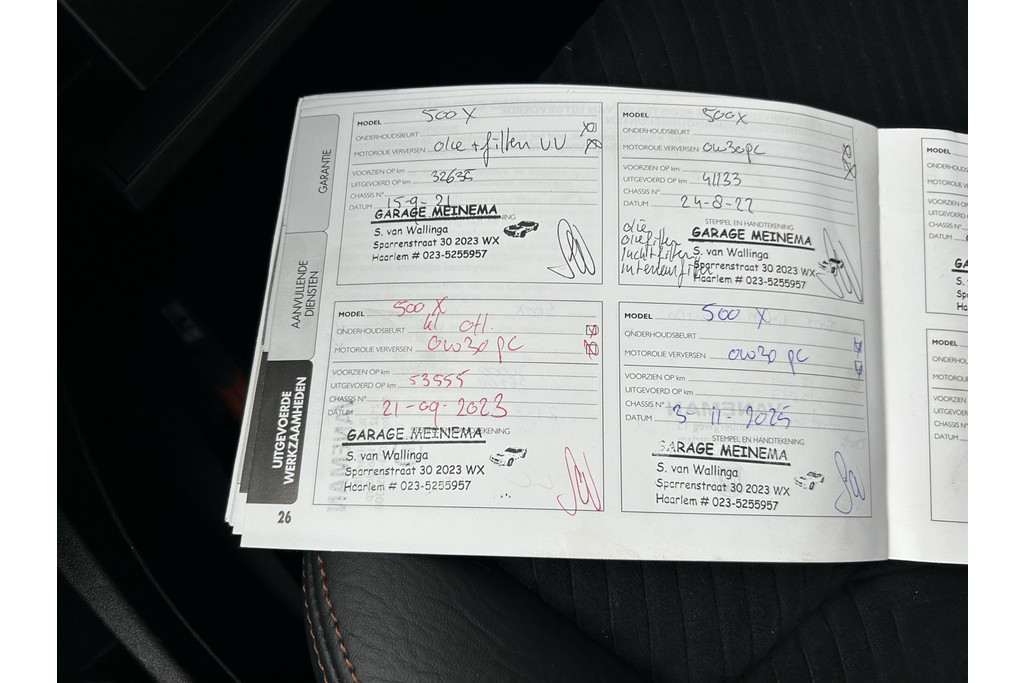 GARANTIE
AANVULLENDE
DIENSTEN
UITGEVOERDE
WERKZAAMHEDEN
26
MODEL 500X
ONDERHOUDSBEURT
MOTOROLIE VERVERSEN olie + filter VV
VOORZIEN OP km
UITGEVOERD OP km 32635
CHASSIS N°
DATUM 15-9-21
GARAGE MEINEMA
S. van Wallinga
Sparrenstraat 30 2023 WX
Haarlem # 023-5255957
MODEL 500X
ONDERHOUDSBEURT
MOTOROLIE VERVERSEN 0w30pc
VOORZIEN OP km
UITGEVOERD OP km 41133
CHASSIS N°
DATUM 24-8-22
STEMPEL EN HANDTEKENING
olie
oliefilter
luchtfilter
interieurfilter
GARAGE MEINEMA
S. van Wallinga
Sparrenstraat 30 2023 WX
Haarlem # 023-5255957
MODEL 500 X
ONDERHOUDSBEURT kl
MOTOROLIE VERVERSEN 0w30 pc
VOORZIEN OP km
UITGEVOERD OP km 53555
CHASSIS N°
DATUM 21-09-2023
GARAGE MEINEMA
S. van Wallinga
Sparrenstraat 30 2023 WX
Haarlem # 023-5255957
MODEL 500 X
ONDERHOUDSBEURT
MOTOROLIE VERVERSEN 0w30 pc
VOORZIEN OP km
UITGEVOERD OP km
CHASSIS N°
DATUM 3-11-2025
STEMPEL EN HANDTEKENING
GARAGE MEINEMA
S. van Wallinga
Sparrenstraat 30 2023 WX
Haarlem # 023-5255957
MODEL
ONDERHOUDS
MOTOROLIE
VOORZIEN O
UITGEVOERD
CHASSIS N°
DATUM
GA
S.
Sp
Ha
MODEL
ONDERHOU
MOTOROLI
VOORZIEN
UITGEVOER
CHASSIS N°
DATUM